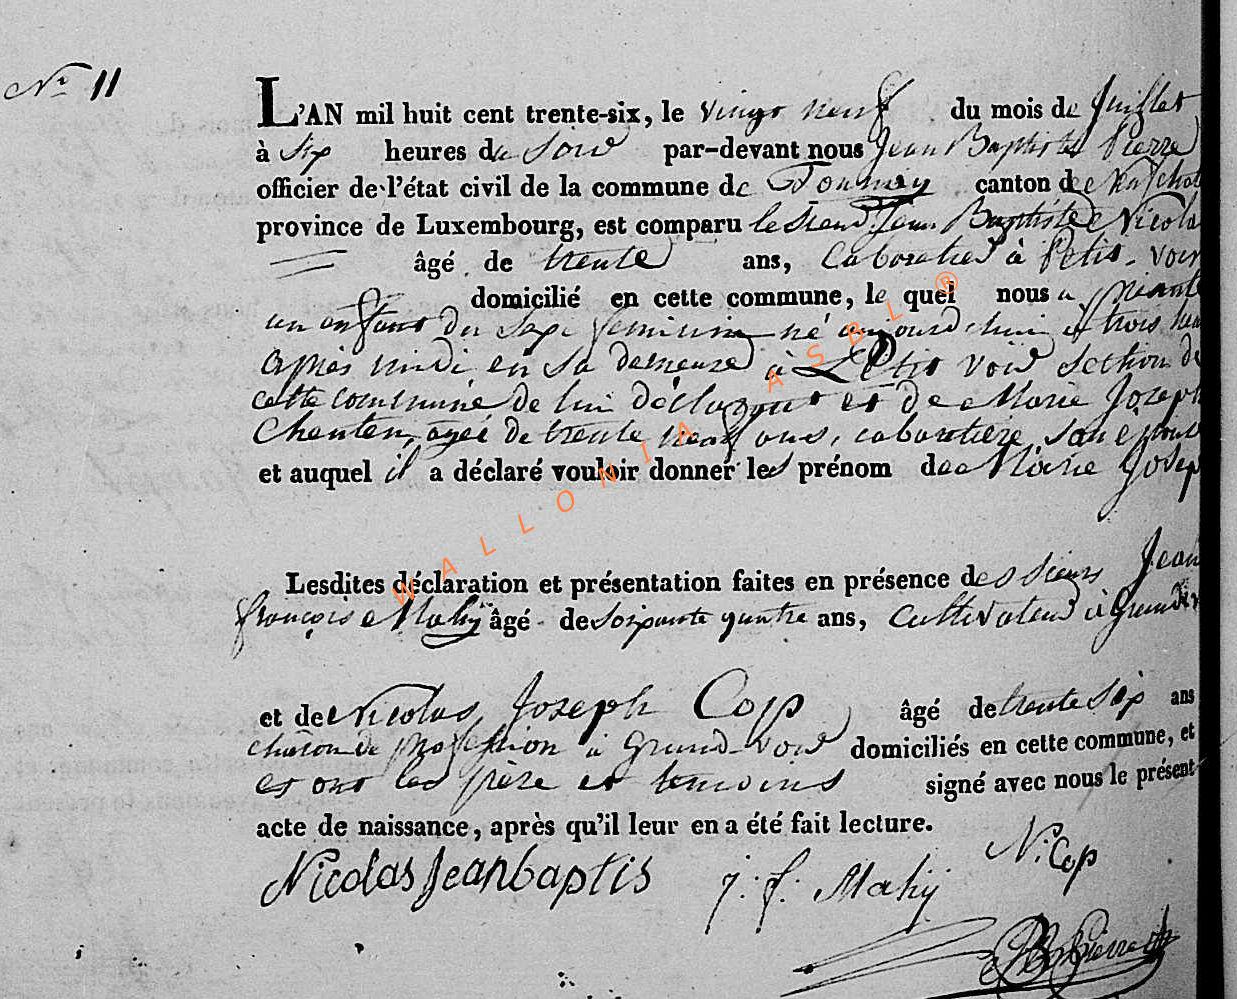 Nº 11
L'AN mil huit cent trente-six, le vingt neuf du mois de Juillet
à six heures du soir par-devant nous Jean Baptiste Pierre
officier de l'état civil de la commune de Tournay canton de
province de Luxembourg, est comparu le sieur Jean Baptiste Nicolas
âgé de trente ans, Cabaretier à Petit-voir
domicilié en cette commune, le quel nous a
un enfant du sexe feminin né aujourd'hui à trois heu
après midi en sa demeure à Petit voir section de
cette commune de lui déclarant et de Marie Joseph
agée de trente neuf ans, cabaretière, son épouse
et auquel il a déclaré vouloir donner les prénom de Marie Joseph
Lesdites déclaration et présentation faites en présence des sieurs Jean
françois Mahij âgé de soixante quatre ans, Cultivateur à
et de Nicolas Joseph Cop âgé de trente six ans
charon de profession à Grand-voir domiciliés en cette commune, et
et ont les père et temoins signé avec nous le présent
acte de naissance, après qu'il leur en a été fait lecture.
Nicolas Jeanbaptis j. f. Mahij N. Cop
JB Pierre
WALLONIA ASBL ®